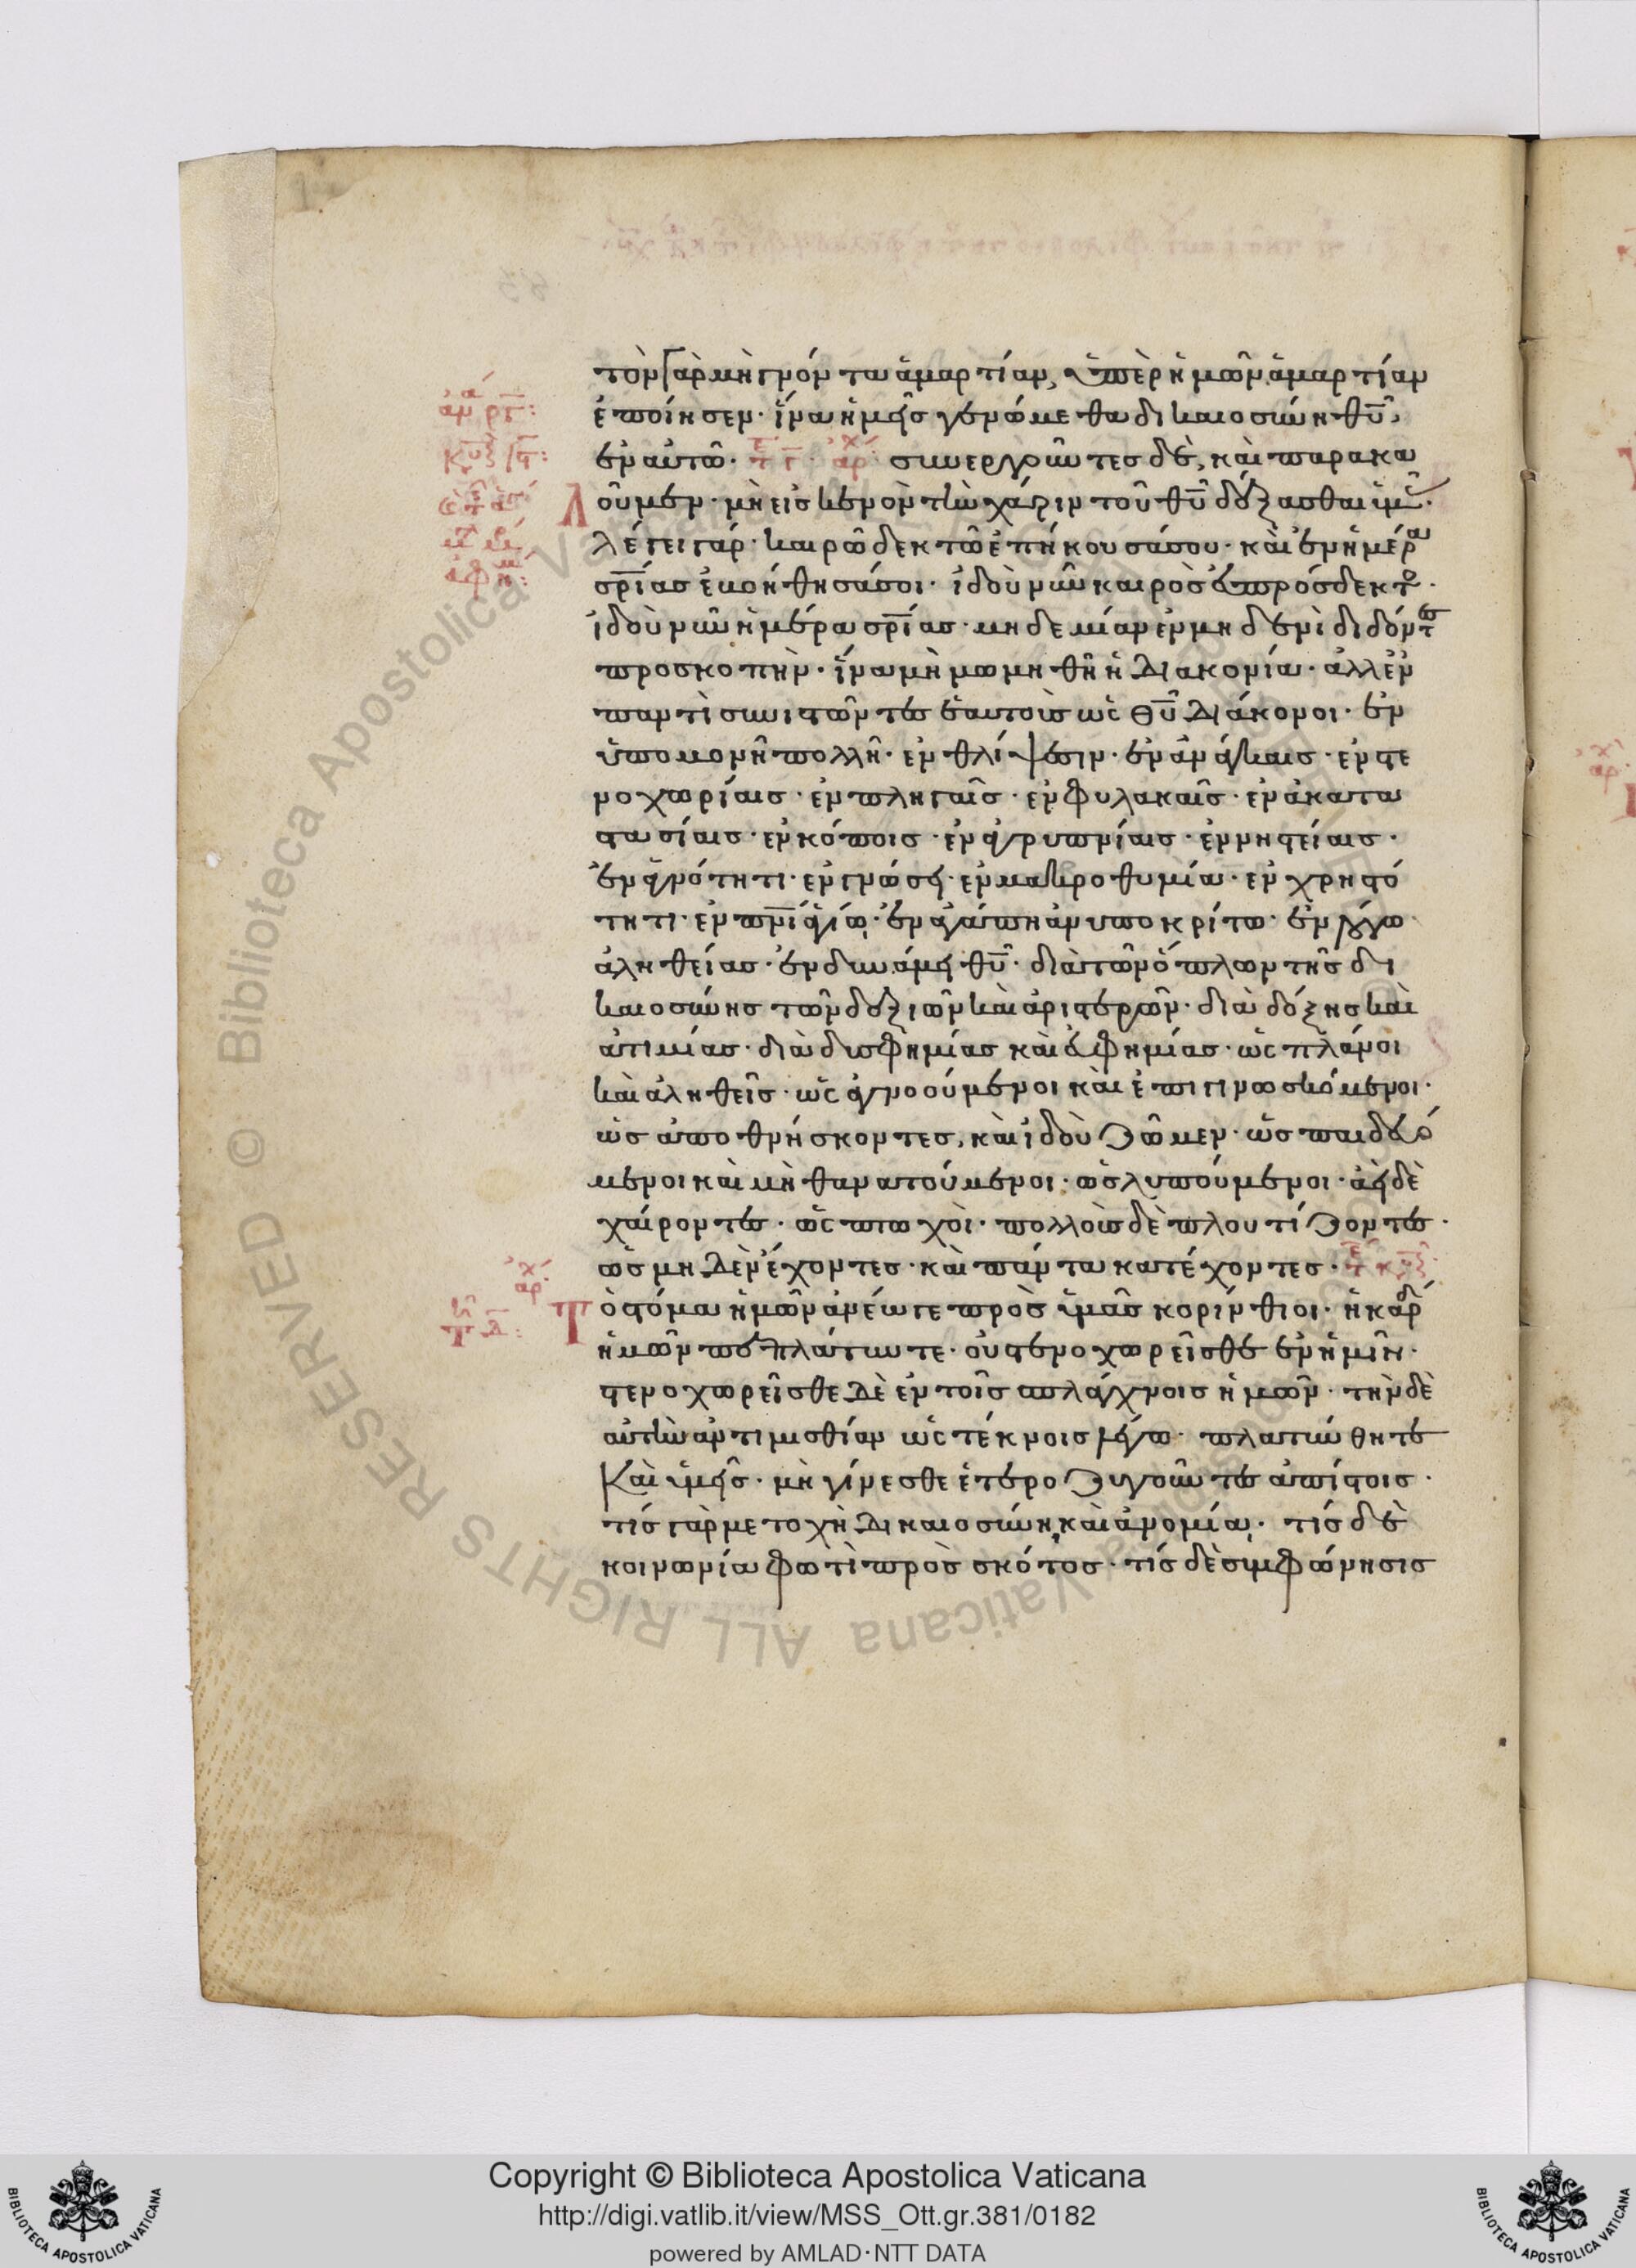 τὸν γὰρ μὴ γνόντα ἁμαρτίαν, ὑπὲρ ἡμῶν ἁμαρτίαν
ἐποίησεν· ἵνα ἡμεῖς γενώμεθα δικαιοσύνη θῦ,
ἐν αὐτῶ· συνεργοῦντες δὲ, καὶ παρακα
λοῦμεν· μὴ εἰς κενὸν τὴν χάριν τοῦ θῦ δέξασθαι ὑμᾶς·
λέγει γάρ· καιρῶ δεκτῶ ἐπήκουσά σου· καὶ ἐν ἡμέρα
σρίας ἐβοήθησά σοι· ἰδοὺ νῦν καιρὸς εὐπρόσδεκτος·
ἰδοὺ νῦν ἡμέρα σρίας· μηδεμίαν ἐν μηδενὶ διδόντες
προσκοπὴν· ἵνα μὴ μωμηθῆ ἡ διακονία· ἀλλ ἐν
παντὶ συνιστῶντες ἑαυτοὺς ὡς θῦ διάκονοι· ἐν
ὑπομονῆ πολλῆ· ἐν θλίψεσιν· ἐν ἀνάγκαις· ἐν στε
νοχωρίαις· ἐν πληγαῖς· ἐν φυλακαῖς· ἐν ἀκατα
στασίαις· ἐν κόποις· ἐν ἀγρυπνίαις· ἐν νηστείαις·
ἐν ἁγνότητι· ἐν γνώσει· ἐν μακροθυμία· ἐν χρηστό
τητι· ἐν πνι ἁγίω· ἐν ἀγάπη ἀνυποκρίτω· ἐν λόγω
ἀληθείας· ἐν δυνάμει θῦ· διὰ τῶν ὅπλων τῆς δι
καιοσύνης τῶν δεξιῶν καὶ ἀριστερῶν· διὰ δόξης καὶ
ἀτιμίας· διὰ δυσφημίας καὶ εὐφημίας· ὡς πλάνοι
καὶ ἀληθεῖς· ὡς ἀγνοούμενοι καὶ ἐπιγινωσκόμενοι·
ὡς ἀποθνήσκοντες, καὶ ἰδοὺ ζῶμεν· ὡς παιδευό
μενοι καὶ μὴ θανατούμενοι· ὡς λυπούμενοι· ἀεὶ δὲ
χαίροντες· ὡς πτωχοὶ· πολλοὺς δὲ πλουτίζοντες·
ὡς μηδὲν ἔχοντες· καὶ πάντα κατέχοντες·
Τὸ στόμα ἡμῶν ἀνέωγε πρὸς ὑμᾶς κορίνθιοι· ἡ καρδία
ἡμῶν πεπλάτυνται· οὐ στενοχωρεῖσθε ἐν ἡμῖν·
στενοχωρεῖσθε δὲ ἐν τοῖς σπλάγχνοις ἡμῶν· τὴν δὲ
αὐτὴν ἀντιμισθίαν ὡς τέκνοις λέγω· πλατύνθητε
καὶ ὑμεῖς· μὴ γίνεσθε ἑτεροζυγοῦντες ἀπίστοις·
τίς γὰρ μετοχὴ δικαιοσύνη καὶ ἀνομία· τίς δὲ
κοινωνία φωτὶ πρὸς σκότος· τίς δὲ συμφώνησις
Copyright © Biblioteca Apostolica Vaticana
http://digi.vatlib.it/view/MSS_Ott.gr.381/0182
powered by AMLAD·NTT DATA